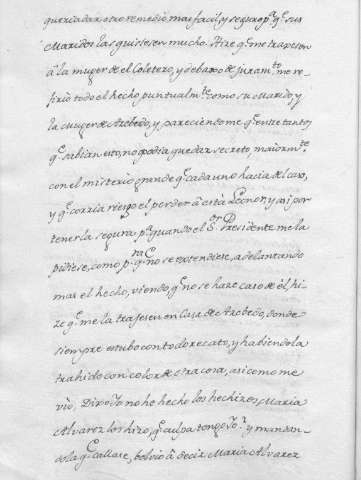 queria dar otro remedio mas facil, y seguro pª qᵉ sus
Maridos las quisiesen mucho. Hize qᵉ me trajesen
â la muger de el Coletero, y debaxo de juramᵗᵒ me re-
firiò todo el hecho puntualmᵗᵉ como su Marido, y
la Muger de Azebedo, y pareciendome qᵉ entre tantos
qᵉ sabian esto, no podia quedar secreto, maiormᵗᵉ,
con el misterio grande qᵉ cada uno hacia del caso,
y qᵉ corria riesgo el perder â esta Leonor, y asi por
tenerla segura pª quando el Sᵒʳ Presidente me la
pidiese, como pª qᵉ no se extendiese, adelantando
mas el hecho, viendo, qᵉ no se haze caso de èl, hi-
ze qᵉ me la trajesen en Casa de Azebedo, donde
siempre estubo con todo recato, y habiendola
trahido con color de otra cosa, asi como me
viò, Dixo Yo no he hecho los hechizos, Maria
Alvarez los hizo, qᵉ culpa tengo Yo? y mandan-
dola qᵉ callase, bolviò â decir Maria Alvarez